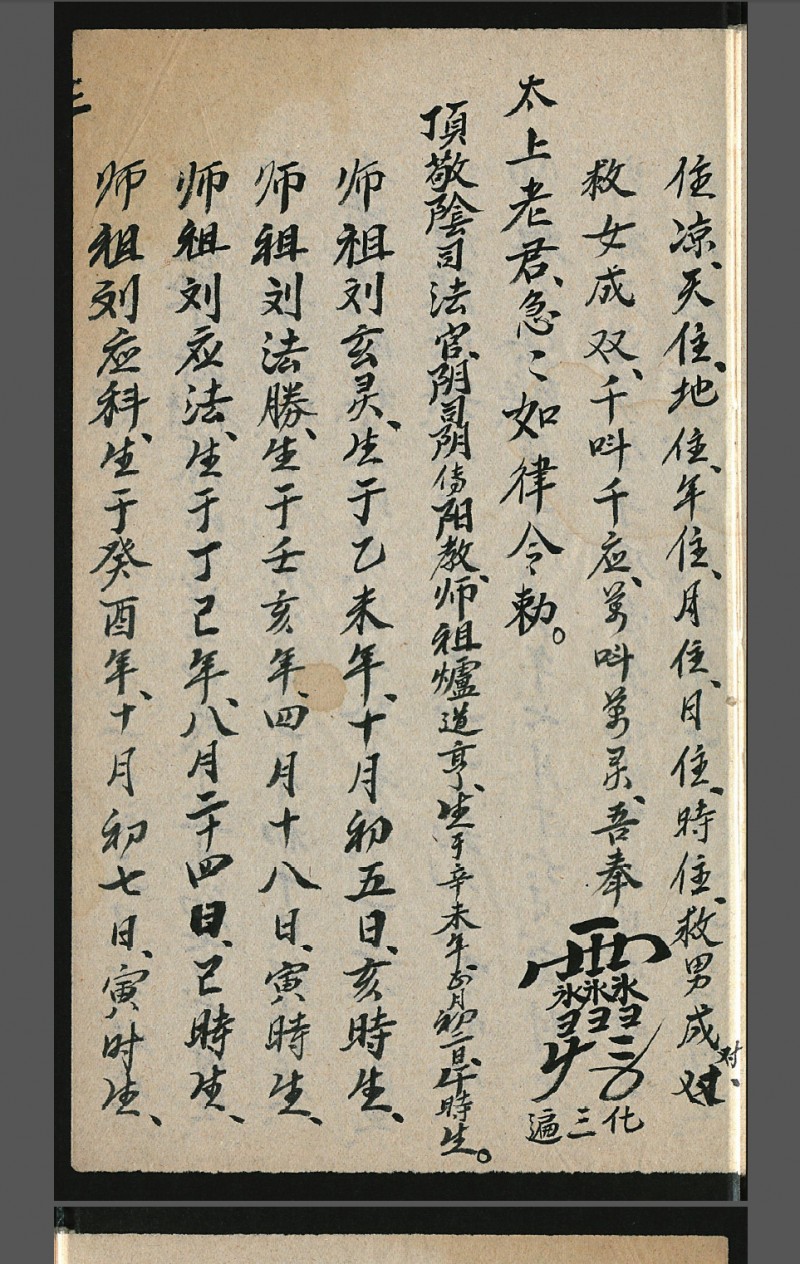 住凉、天住、地住、年住、月住、日住、時住、救男成对、
救女成双、千呌千应、萬呌萬灵、吾奉
化三遍
太上老君、急〻如律令勅。
頂敬陰司法官、阴司阴传阳教、师祖爐道亨、生于辛未年、正月初二日、午時生。
师祖刘玄灵、生于乙未年、十月初五日、亥時生、
师祖刘法勝、生于壬亥年、四月十八日、寅時生、
师祖刘应法、生于丁己年、八月二十四日、己時生、
师祖刘应科、生于癸酉年、十月初七日、寅时生、